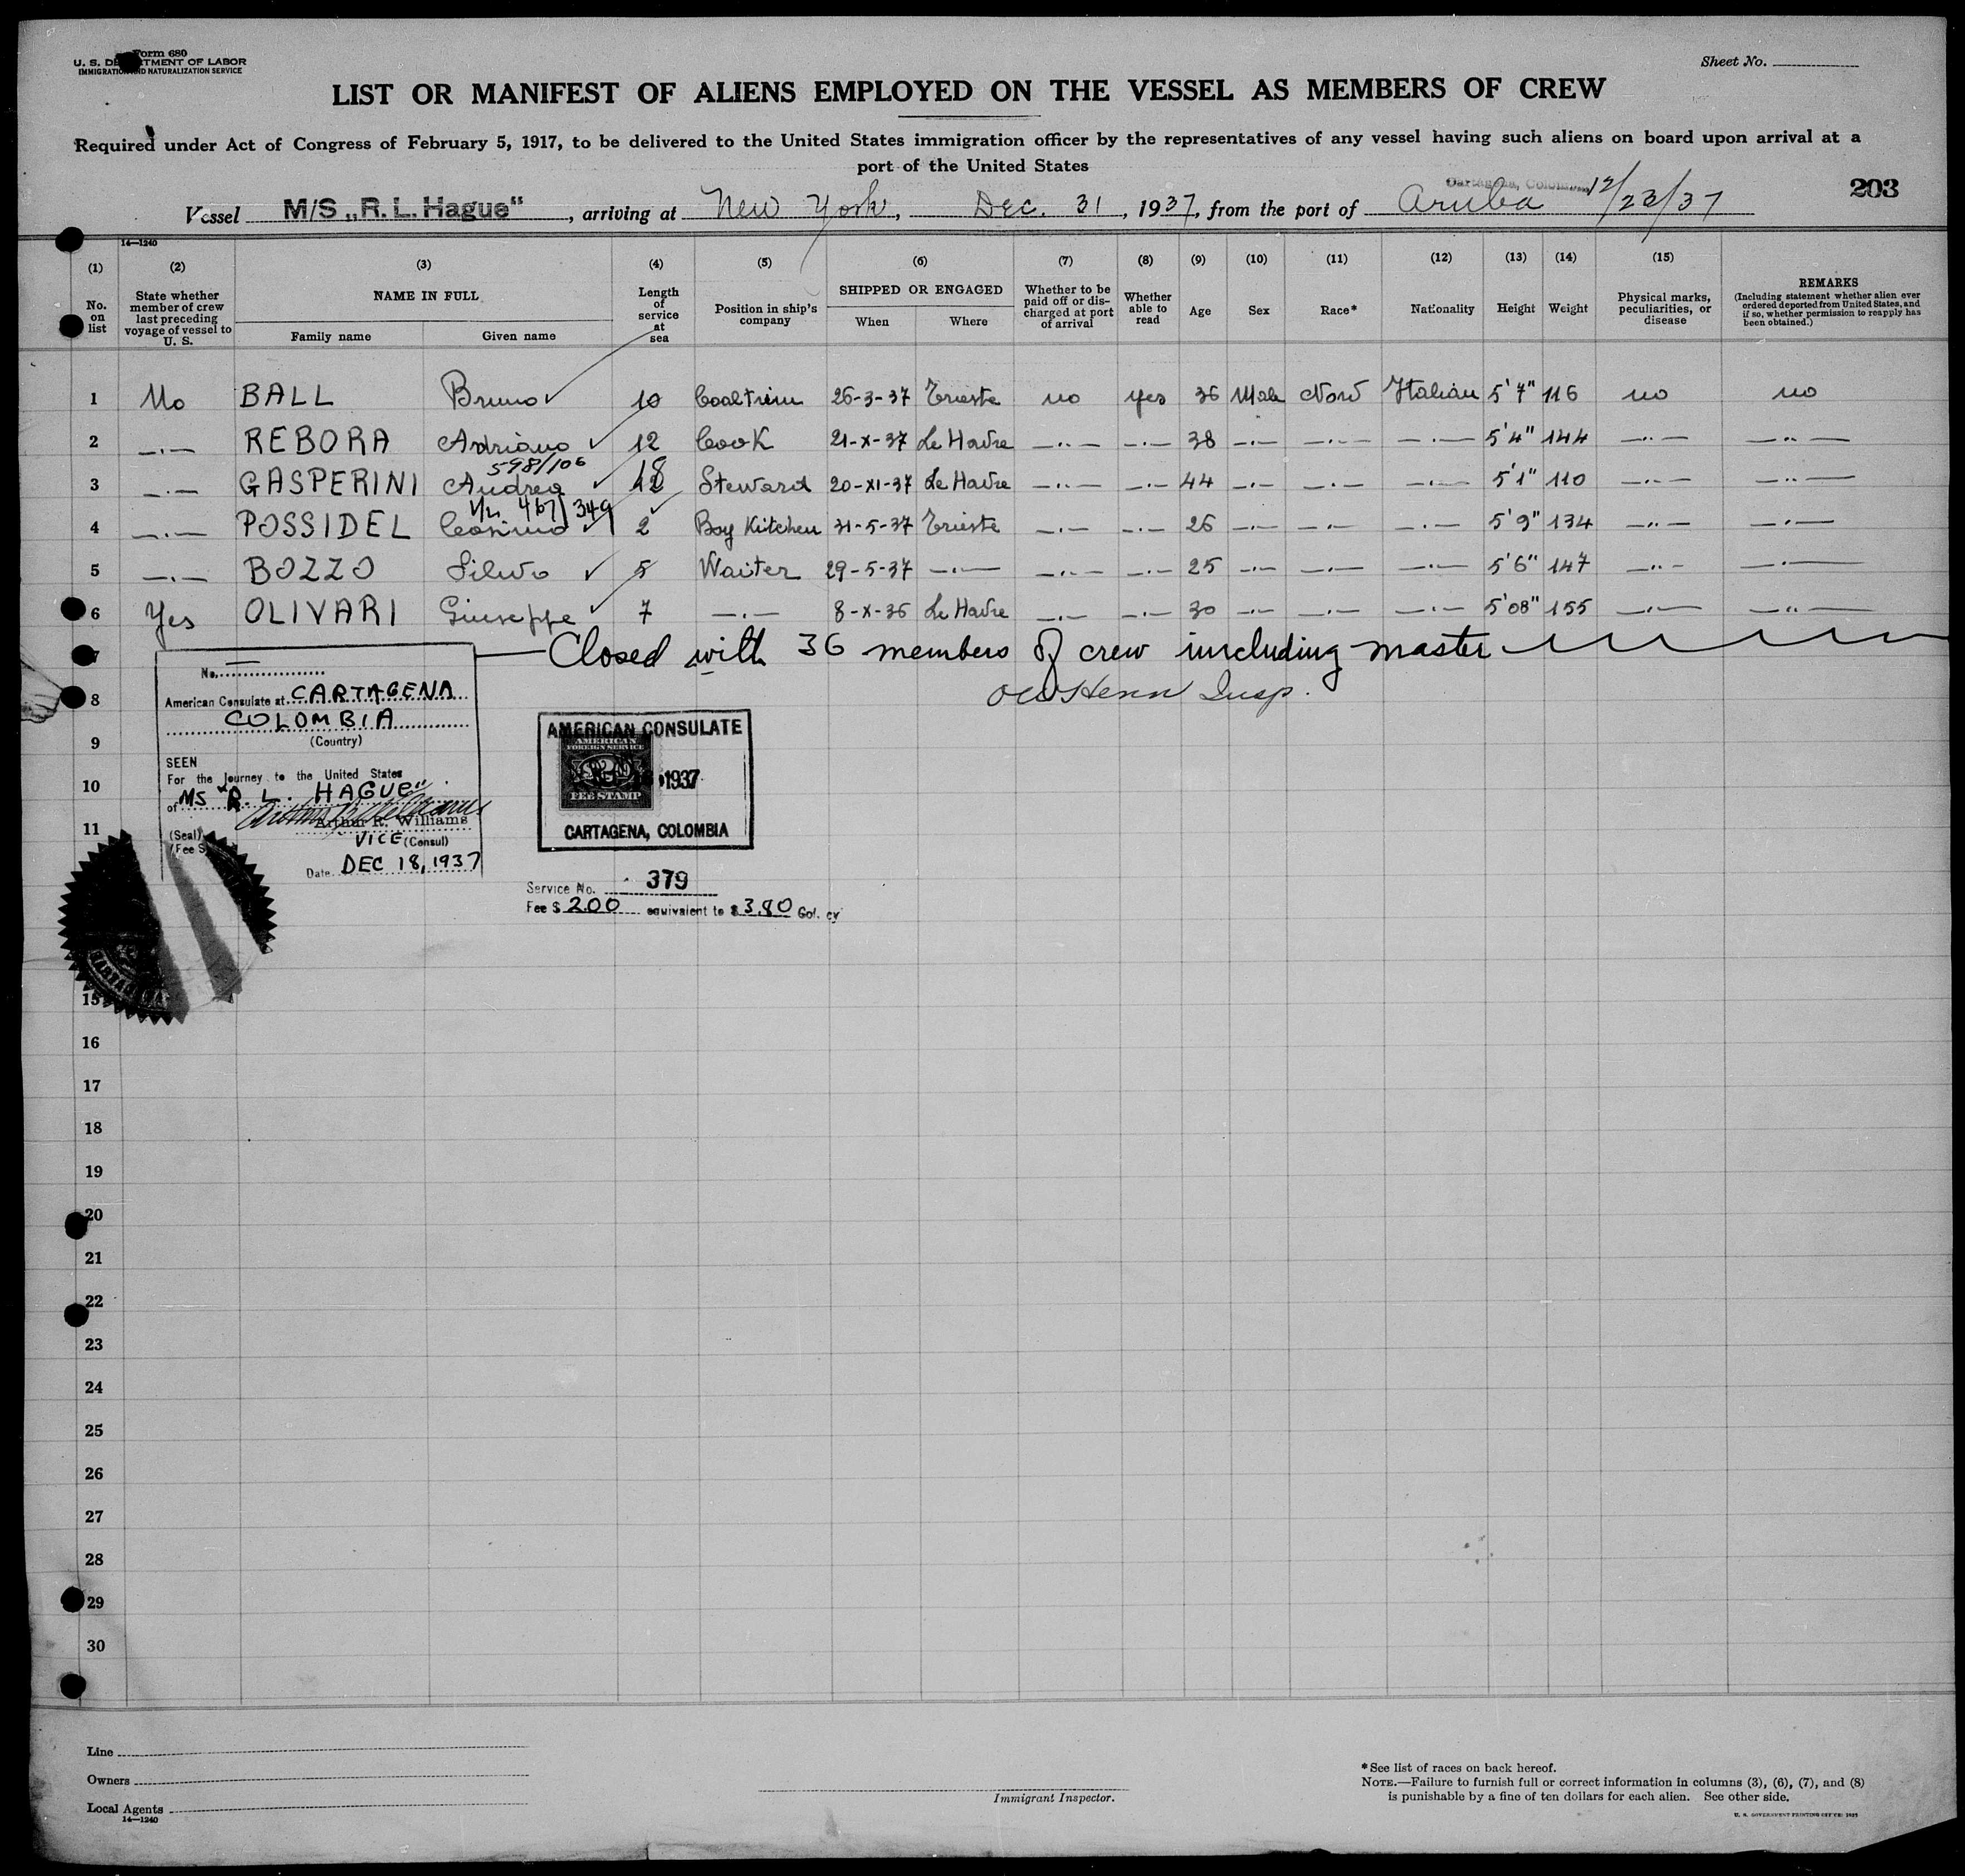 Form 680
U. S. DEPARTMENT OF LABOR
IMMIGRATION AND NATURALIZATION SERVICE
Sheet No.
LIST OR MANIFEST OF ALIENS EMPLOYED ON THE VESSEL AS MEMBERS OF CREW
Required under Act of Congress of February 5, 1917, to be delivered to the United States immigration officer by the representatives of any vessel having such aliens on board upon arrival at a
port of the United States
Cartagena, Colombia
203
Vessel M/S „R. L. Hague“, arriving at New York, Dec. 31, 1937, from the port of Aruba 12/23/37
14—1240
(1) (2) (3) (4) (5) (6) (7) (8) (9) (10) (11) (12) (13) (14) (15)
No. on list
State whether member of crew last preceding voyage of vessel to U. S.
NAME IN FULL
Family name Given name
Length of service at sea
Position in ship's company
SHIPPED OR ENGAGED
When Where
Whether to be paid off or discharged at port of arrival
Whether able to read
Age
Sex
Race*
Nationality
Height
Weight
Physical marks, peculiarities, or disease
REMARKS
(Including statement whether alien ever ordered deported from United States, and if so, whether permission to reapply has been obtained.)
1 No BALL Bruno 10 Coaltrim 26-3-37 Trieste no yes 36 Male Nord Italian 5'7" 116 no no
2 —·— REBORA Adriano 12 Cook 21-X-37 Le Havre —··— —·— 38 —·— —·— —·— 5'4" 144 —··— —··—
598/106
3 —·— GASPERINI Andrea 18 Steward 20-XI-37 Le Havre —··— —·— 44 —·— —·— —·— 5'1" 110 —··— —··—
467/349
4 —·— POSSIDEL Cosimo 2 Boy Kitchen 31-5-37 Trieste —·— —·— 26 —·— —·— —·— 5'9" 134 —··— —·—
5 —·— BOZZO Silvio 5 Waiter 29-5-37 —·— —··— —·— 25 —·— —·— —·— 5'6" 147 —··— —·—
6 Yes OLIVARI Giuseppe 7 —·— 8-X-36 Le Havre —·— —·— 30 —·— —·— —·— 5'08" 155 —·— —··—
7 Closed with 36 members of crew including master
Insp.
No.
American Consulate at CARTAGENA
COLOMBIA
(Country)
SEEN
For the Journey to the United States
of MS "R. L. HAGUE"
Arthur R. Williams
VICE (Consul)
(Seal)
(Fee S
Date DEC 18, 1937
AMERICAN CONSULATE
AMERICAN
FOREIGN SERVICE
1937
FEE STAMP
CARTAGENA, COLOMBIA
Service No. 379
Fee $ 2.00 equivalent to $ 3.80 Gol. cy
8
9
10
11
15
16
17
18
19
20
21
22
23
24
25
26
27
28
29
30
Line
Owners
Local Agents
14—1240
Immigrant Inspector.
*See list of races on back hereof.
NOTE.—Failure to furnish full or correct information in columns (3), (6), (7), and (8)
is punishable by a fine of ten dollars for each alien. See other side.
U. S. GOVERNMENT PRINTING OFFICE: 1937